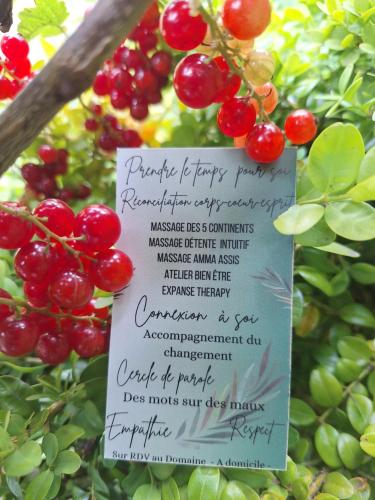 Prendre le temps pour soi
Réconciliation corps-coeur-esprit
MASSAGE DES 5 CONTINENTS
MASSAGE DÉTENTE INTUITIF
MASSAGE AMMA ASSIS
ATELIER BIEN ÊTRE
EXPANSE THERAPY
Connexion à soi
Accompagnement du
changement
Cercle de parole
Des mots sur des maux
Empathie Respect
Sur RDV au Domaine - A domicile -